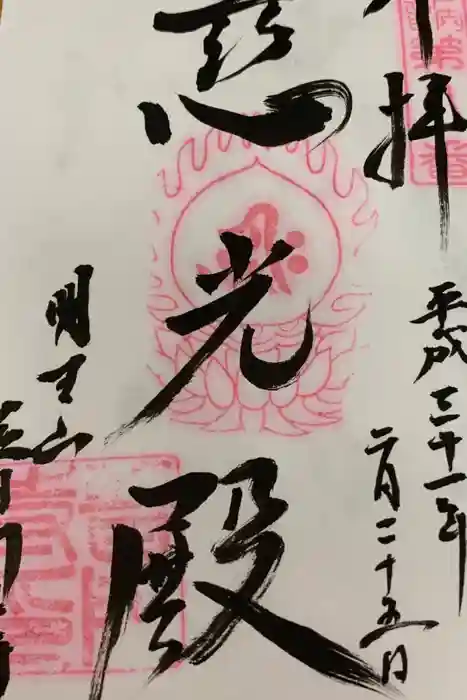 奉拝
平成三十一年
二月二十五日
慈光殿
明王山